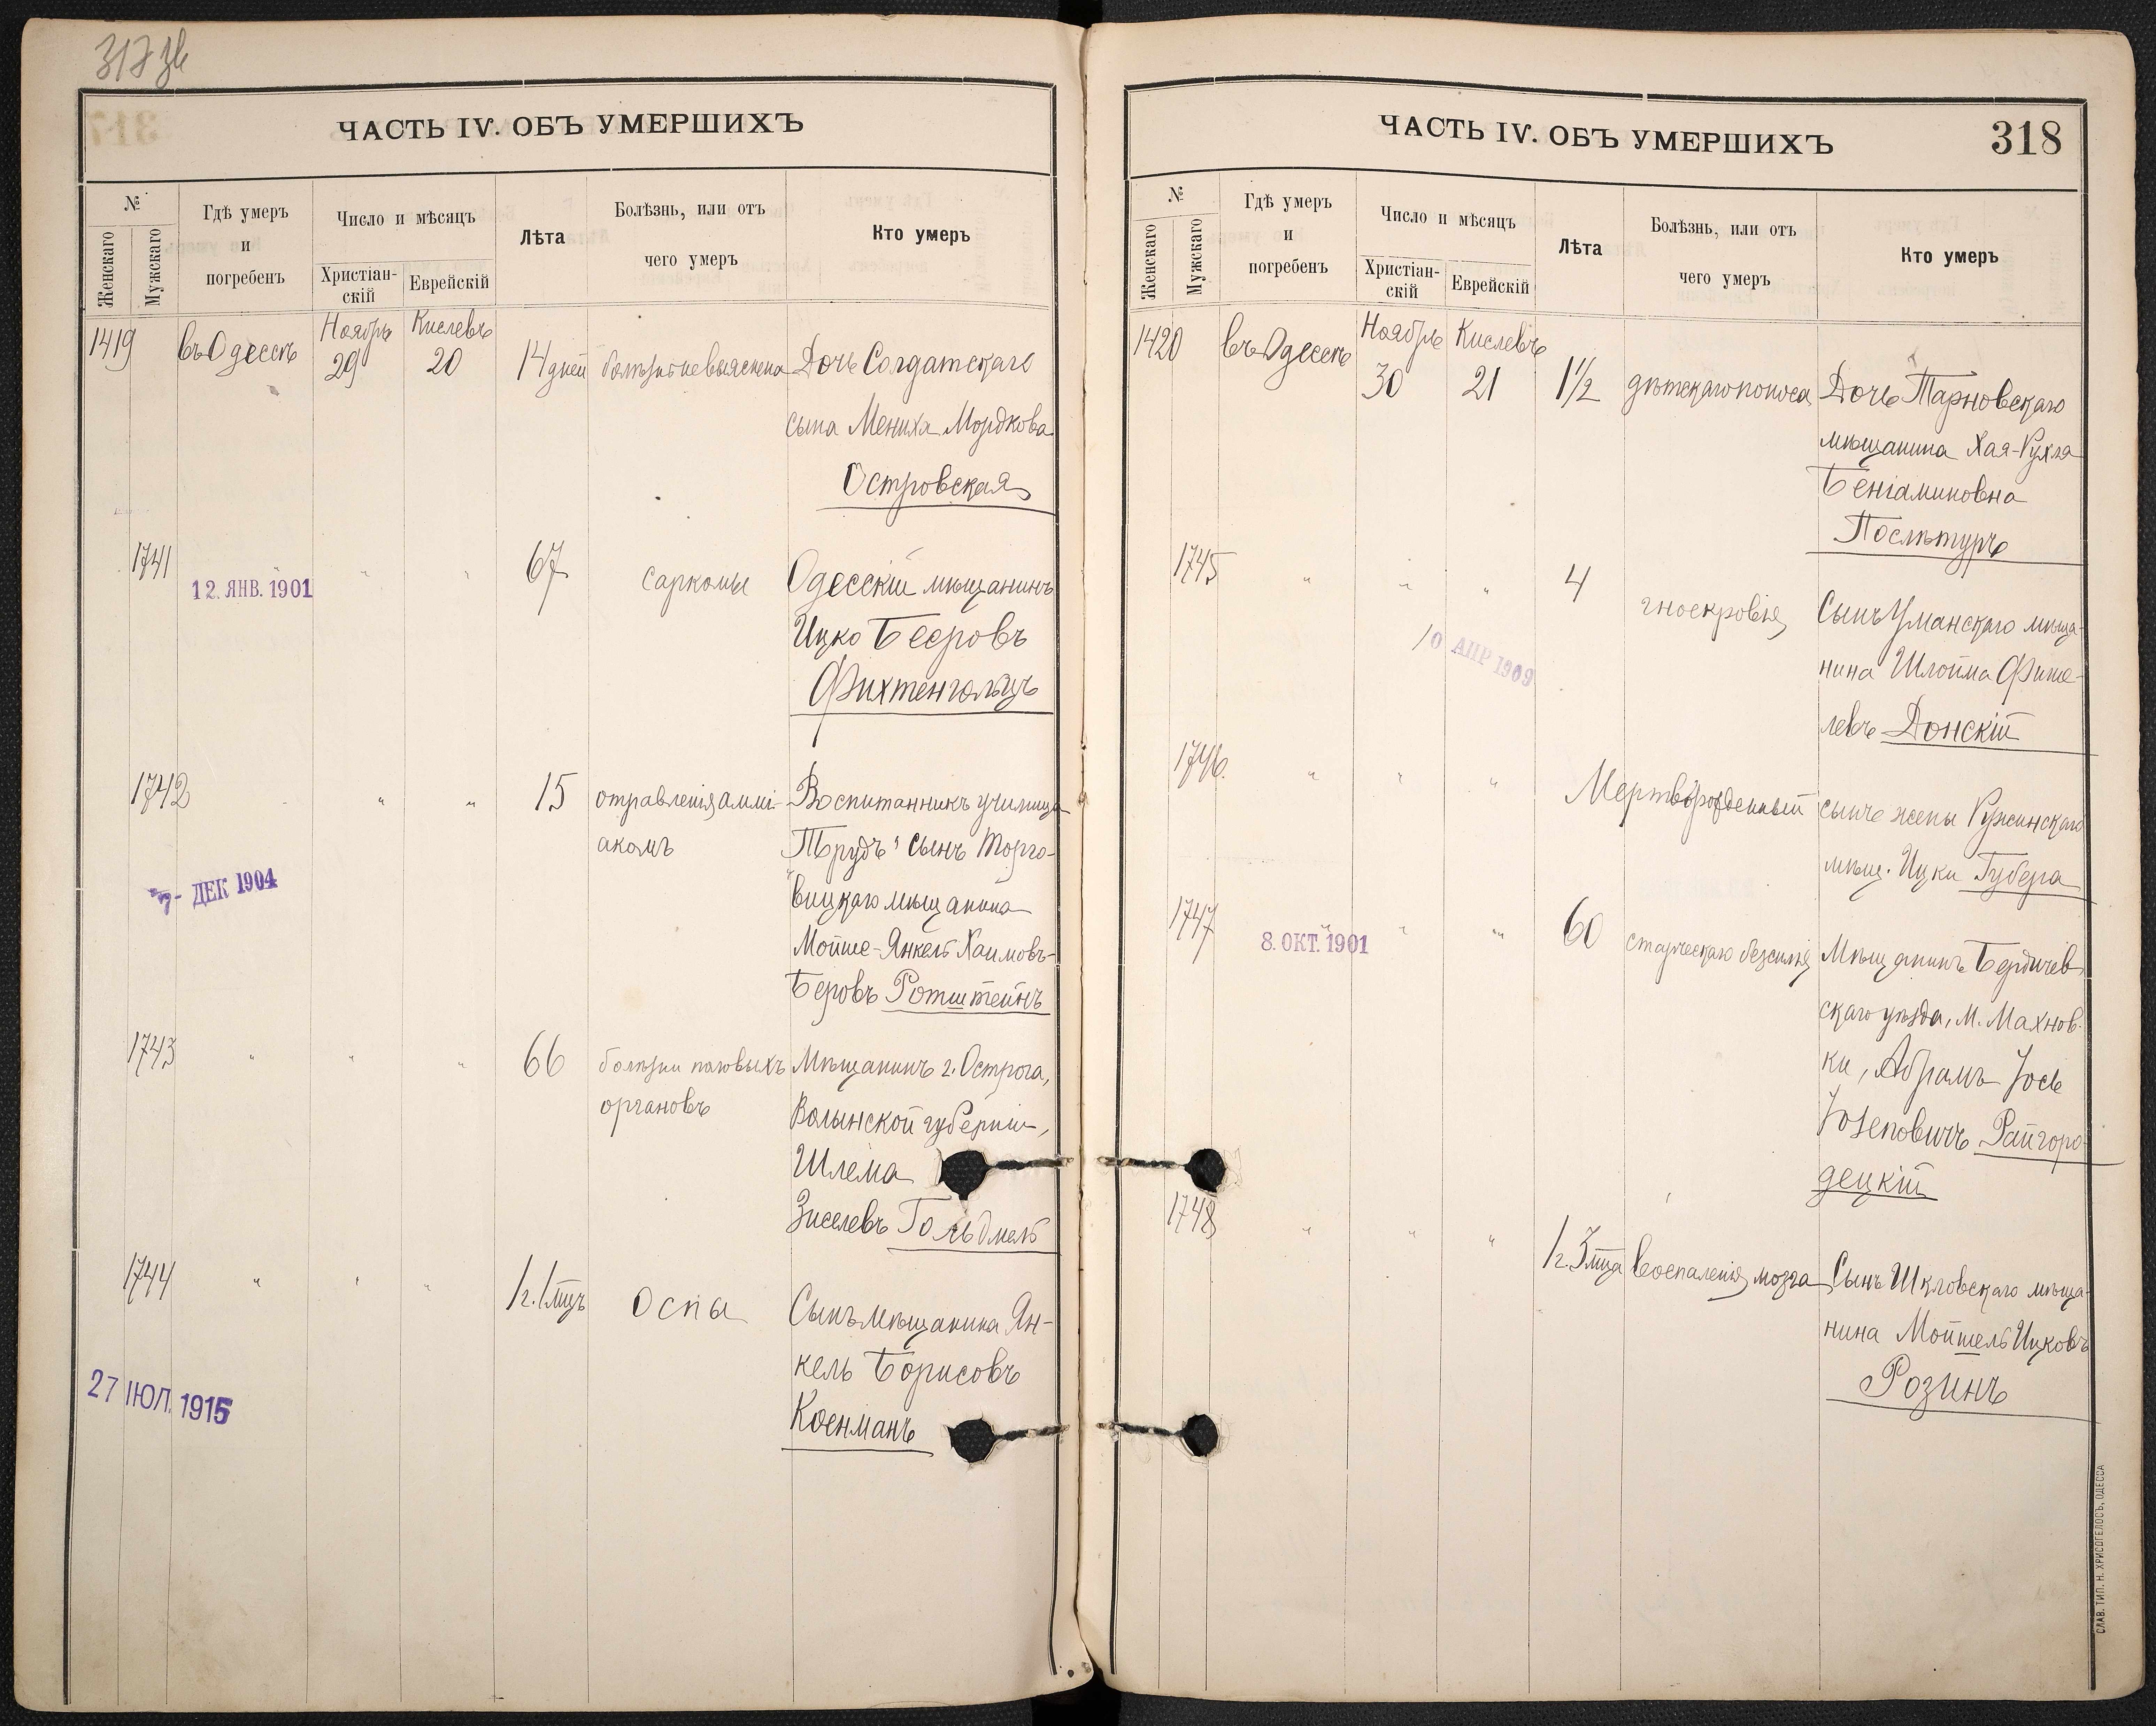 317 зв
ЧАСТЬ IV. ОБЪ УМЕРШИХЪ
№
Женскаго
Мужскаго
Гдѣ умеръ
и
погребенъ
Число и мѣсяцъ
Христіан-
скій
Еврейскій
Лѣта
Болѣзнь, или отъ
чего умеръ
Кто умеръ
1419 въ Одессѣ Ноябрь 29 Кислевъ 20 14 дней болѣзнь невыяснена Дочь Солдатскаго
сына Мениха Мордкова
Островская
1741 " " " 67 саркомы Одесскій мѣщанинъ
12. ЯНВ. 1901
Ицко Бееровъ
Фихтенгольцъ
1742 " " 15 отравленія аммі- Воспитанникъ училища
акомъ „Трудъ" сынъ Торго-
7- ДЕК 1904
вицкаго мѣщанина
Мойше-Янкель Хаимовъ-
Беровъ Ротштейнъ
1743 " " " 66 болѣзни половыхъ Мѣщанинъ г. Острога,
органовъ Волынской губерніи,
Шлема
Зиселевъ Гольдмель
1744 " " " 1 г. 1 мцъ Оспа Сынъ мѣщанина Ян-
кель Борисовъ
27 ІЮЛ. 1915
Коенманъ
ЧАСТЬ IV. ОБЪ УМЕРШИХЪ
318
№
Женскаго
Мужскаго
Гдѣ умеръ
и
погребенъ
Число и мѣсяцъ
Христіан-
скій
Еврейскій
Лѣта
Болѣзнь, или отъ
чего умеръ
Кто умеръ
1420 въ Одессѣ Ноябрь 30 Кислевъ 21 1½ дѣтскаго поноса Дочь Тарновскаго
мѣщанина Хая-Рухля
Беніаминовна
1745 " " " 4 гноекровія Сынъ Уманскаго мѣща-
10 АПР 1909
нина Шлойма Фише-
левъ Донскій
1746. " " " Мертворожденный сынъ жены Ружинскаго
мѣщ. Ицки Губера
1747 " " " 60 старческаго безсилія Мѣщанинъ Бердичев-
8. ОКТ. 1901
скаго уѣзда, М. Махнов-
ки, Абрамъ Іось
Іозеповичъ Райгоро-
децкій
1748 " " " 1 г. 3 мца воспаленія мозга Сынъ Шкловскаго мѣща-
нина Мойшель Ицковъ
Розинъ
СЛАВ. ТИП. Н. ХРИСОГЕЛОСЪ, ОДЕССА